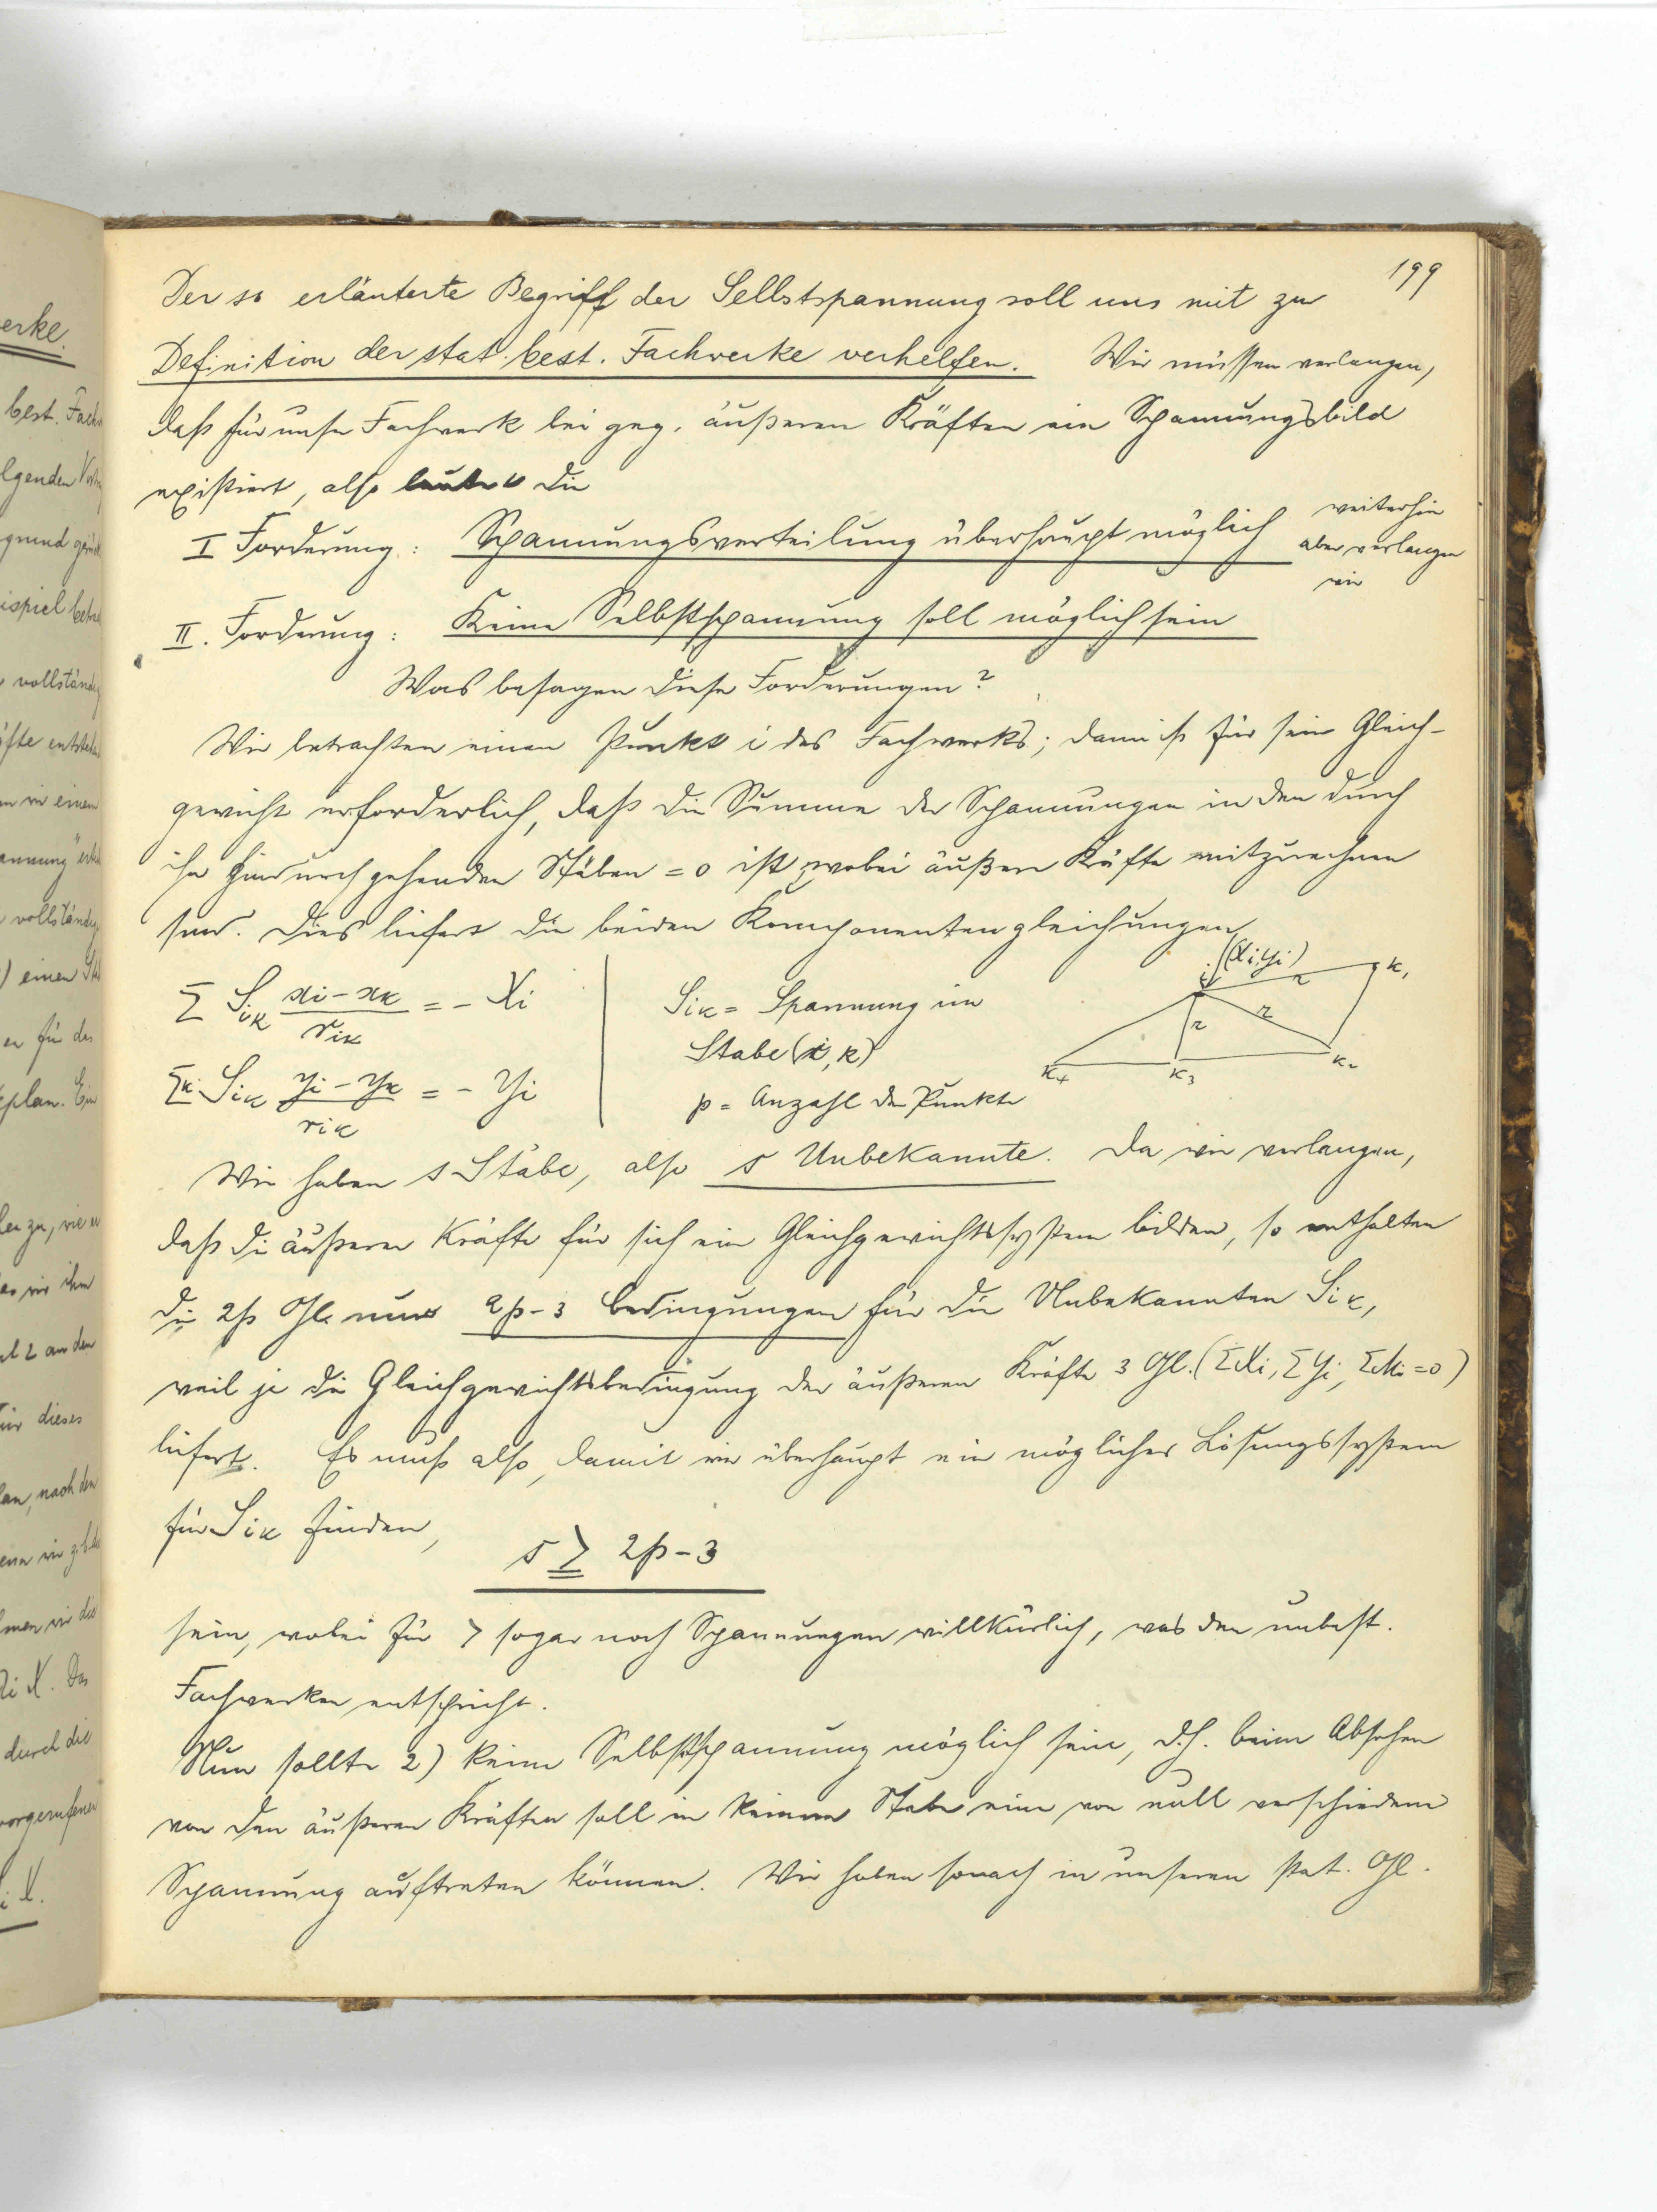 199
Der so erläuterte Begriff der Selbstspannung soll uns mit zur
Definition der stat. best. Fachwerke verhelfen. Wir müssen verlangen,
daß für unser Fachwerk bei geg. äußeren Kräften ein Spannungsbild
existiert, also lautet die
I Forderung: Spannungsverteilung überhaupt möglich weiterhin
aber verlangen
wir
II. Forderung: Keine Selbstspannung soll möglich sein
Was besagen diese Forderungen?
Wir betrachten einen Punkt i des Fachwerks; dann ist für sein Gleich-
gewicht erforderlich, daß die Summe der Spannungen in den durch
ihn hindurchgehenden Stäben = 0 ist, wobei äußere Kräfte mitzurechnen
sind. Dies liefert die beiden Komponentengleichungen
Σ Sik (xi - xk)/rik = - Xi
Sik = Spannung im
Stabe (i, k)
Σk Sik (yi - yk)/rik = - Yi
p = Anzahl der Punkte
(Xi Yi)
i
k1
r
r
r
k4
k3
k2
Wir haben s Stäbe, also s Unbekannte. Da wir verlangen,
daß die äußeren Kräfte für sich ein Gleichgewichtssystem bilden, so enthalten
die 2p Gl. nur 2p-3 Bedingungen für die Unbekannten Sik,
weil je die Gleichgewichtsbedingung der äußeren Kräfte 3 Gl. (ΣXi, ΣYi, ΣMi = 0)
liefert. Es muß also, damit wir überhaupt ein mögliches Lösungssystem
für Sik finden,
s ≧ 2p-3
sein, wobei für > sogar noch Spannungen willkürlich, was den unbest.
Fachwerken entspricht.
Nun sollte 2) keine Selbstspannung möglich sein, d.h. beim Absehen
von den äußeren Kräften soll in keinem Stabe eine von null verschiedene
Spannung auftreten können. Wir haben sonach in unseren stat. Gl.
erke.
best. Fach
lgenden
grund
ispiel
vollständig
äfte
wir einem
annung"
vollständig
) einen
er für das
plan. Ein
zu, wie
wir ihm
2 aus dem
für dieses
lan, nach den
wir
men wir die
X. Das
durch die
vorgerufenen
X.